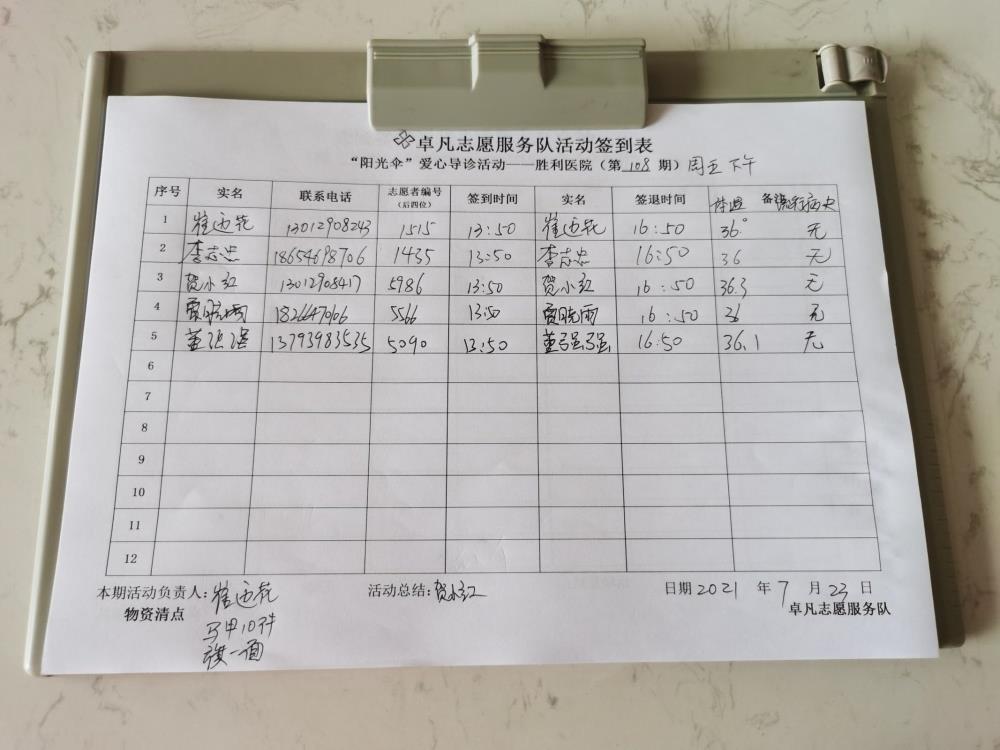 卓凡志愿服务队活动签到表
“阳光伞”爱心导诊活动——胜利医院（第 108 期）周五下午
序号 实名 联系电话 志愿者编号（后四位） 签到时间 实名 签退时间 体温 备注 流行病史
1 崔迎花 13012908243 1515 13:50 崔迎花 16:50 36° 无
2 李志忠 18654698706 1435 13:50 李志忠 16:50 36 无
3 贺小红 13012905417 5986 13:50 贺小红 16:50 36.3 无
4 贾晓雨 5566 13:50 贾晓雨 16:50 36 无
5 董强强 13793983535 5090 13:50 董强强 16:50 36.1 无
6
7
8
9
10
11
12
本期活动负责人：崔迎花 活动总结：贺小红 日期 2021 年 7 月 23 日
物资清点 卓凡志愿服务队
马甲10件
旗一面